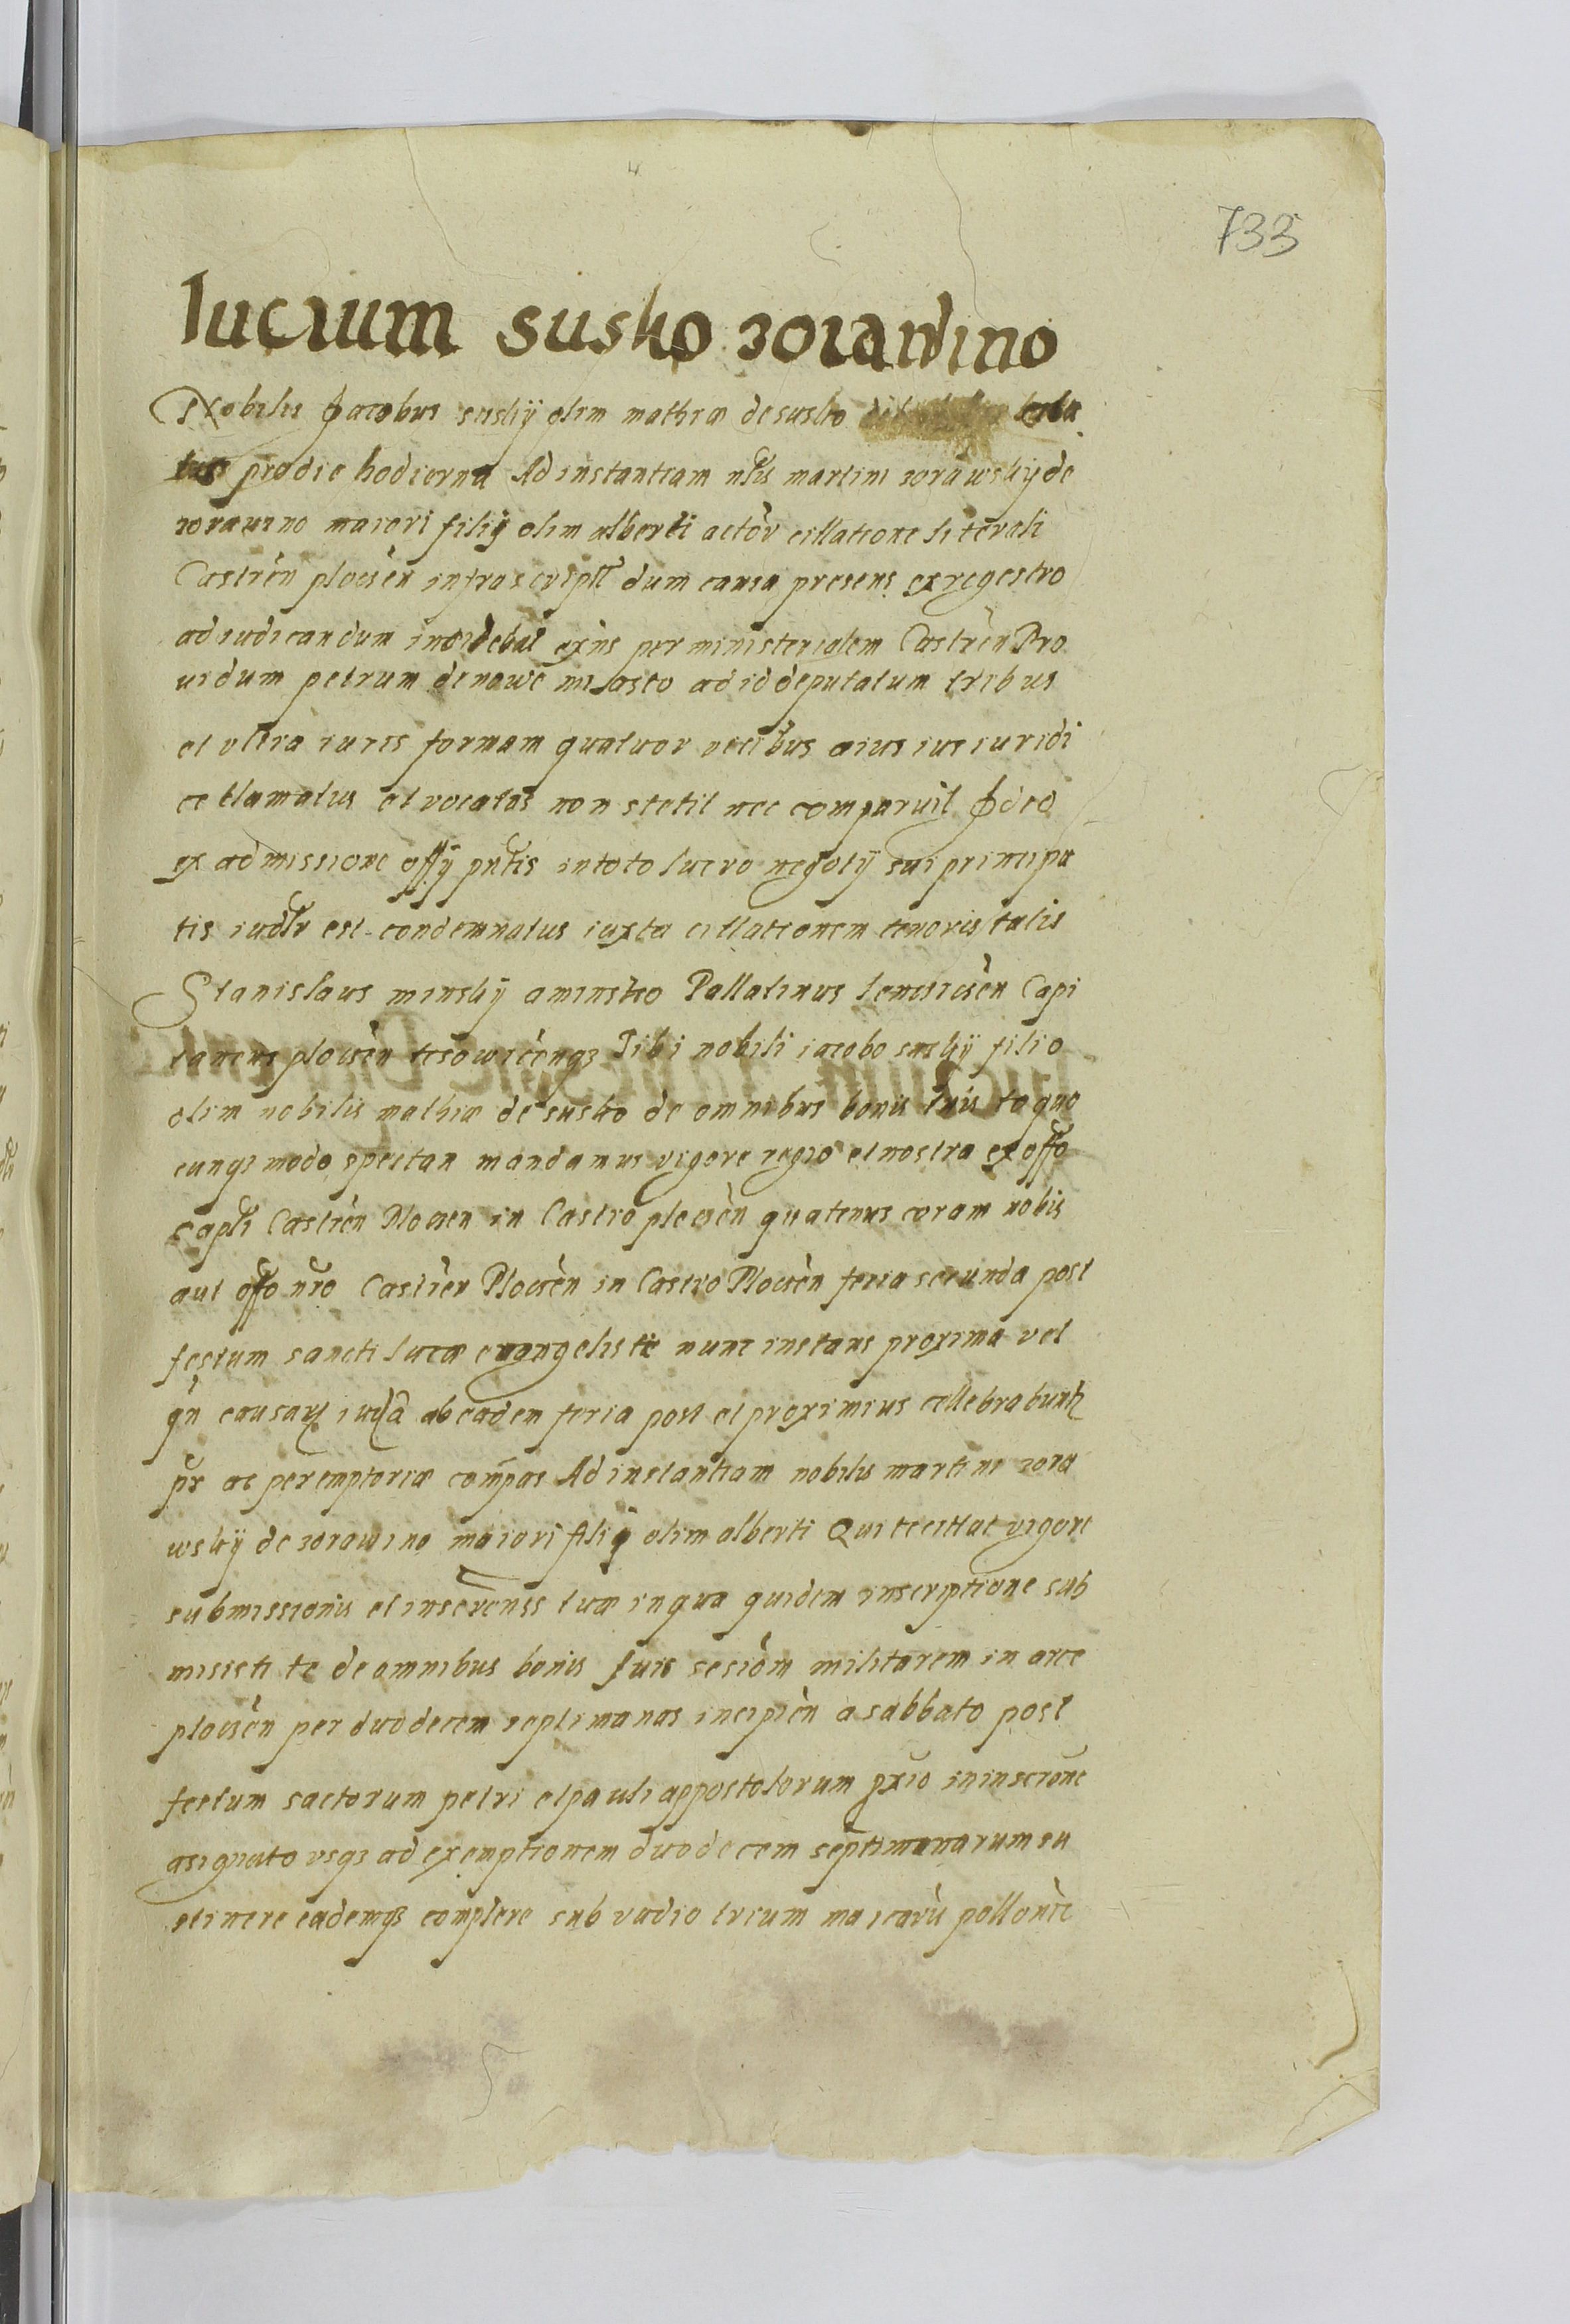 733
lucrum susko zorawino
Nobilis Jacobus suskÿ olim mathiæ de susko cita
tus pro die hodierna Ad instantiam nblis martini zorawskÿ de
zorawino maiori filÿ olim alberti actor cittatione literali
Castren plocen infrascript dum causa presens ex regestro
ad iudicandum incidebat exns per ministerialem Castren Pro
uidum petrum de nowe miasto ad id deputatum tribus
et vltra iuris formam quatuor vicibus aius ius iuridi
ce clamatus et vocatos non stetit nec comparuit Ideo
ex admissione offÿ pntis in toto lucro negotÿ sui principa
lis iudlr est condemnatus iuxta cittationem tenoris talis
Stanislaus minskÿ a minsko Pallatinus lencicien Capi
taneus plocen lisowicenq3 Tibi nobili iacobo suskÿ filio
olim nobilis mathiæ de susko de omnibus bonis tuis to quo
cunq3 modo spectan mandamus vigore regio et nostra ex offo
capli Castren Plocen in Castro plocen quatenus coram nobis
aut offo nro Castren Plocen in Castro Plocen feria secunda post
festum sancti lucæ euangeliste nunc instans proxima vel
qn causar iuda ab eadem feria post et proximius cellebrabunt
pr ac peremptoriæ compas Ad instantiam nobilis martini zora
wskÿ de zorawino maiori filÿ olim alberti Qui te cittat vigore
submissionis et inscrenss tuæ in qua quidem inscriptione sub
misisti te de omnibus bonis tuis sesiom militarem in arce
plocen per duodecem septimanas incipien a sabbato post
festum sactorum petri et pauli appostolorum prxio in inscrione
asignato vsq3 ad exemptionem duodecem septimanarum su
stinere eademq3 complere sub vadio trium marcarum pollonic